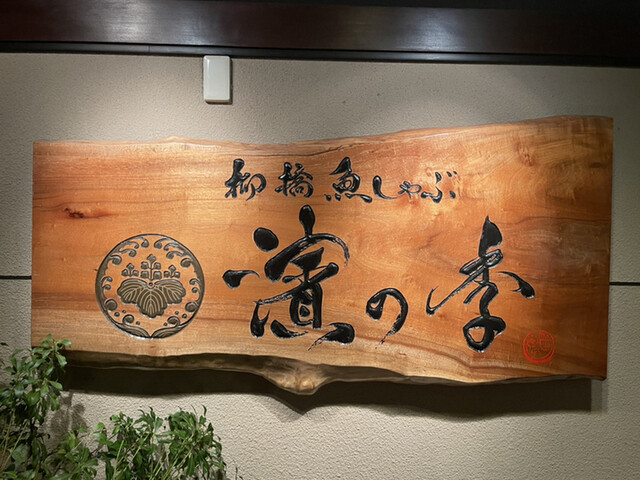 柳橋 魚しゃぶ
濱の季